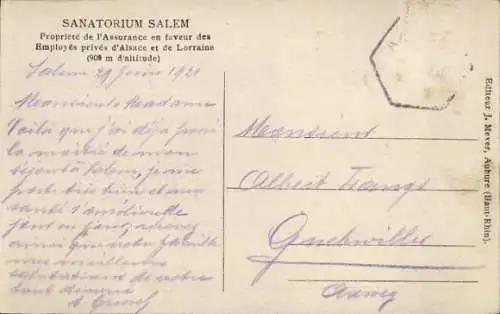 SANATORIUM SALEM
Propriété de l'Assurance en faveur des
Employés privés d'Alsace et de Lorraine
(908 m d'altitude)
Salem 29 Juin 1921
Monsieur Madame
Voila que j'ai déja passé
la moitié de mon
séjour à Salem, je me
porte très bien et ma
santé s'améliore
jour en jour, recevez
ainsi que votre famille
mes meilleures
salutations de votre
tout dévoué
Monsieur
Albert
Guebwiller
Editeur J. Meyer, Aubure (Haut-Rhin).